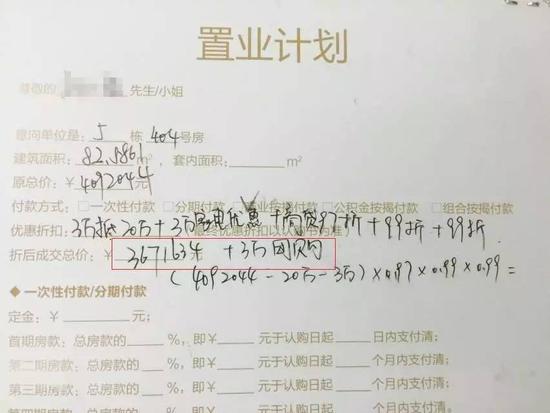 置业计划
尊敬的 先生/小姐
意向单位是: 5 栋 404 号房
建筑面积: 82.5861 m², 套内面积: m²
原总价: ¥ 4092044
付款方式: □一次性付款 □分期付款 □商业按揭付款 □公积金按揭付款 □组合按揭付款
优惠折扣: 3万抵20万+3万 电优惠+ 97折+99折+99折
折后成交总价: ¥ 3671634 +3万团购
(4092044-20万-3万)×0.97×0.99×0.99=
◆ 一次性付款/分期付款
定金: ¥ 元;
首期房款: 总房款的 %, 即¥ 元于认购日起 日内支付清;
第二期房款: 总房款的 %, 即¥ 元于认购日起 个月内支付清;
第三期房款: 总房款的 %, 即¥ 元于认购日起 个月内支付清;
第四期房款: 总房款的 %, 即¥ 元于认购日起 个月内支付清;